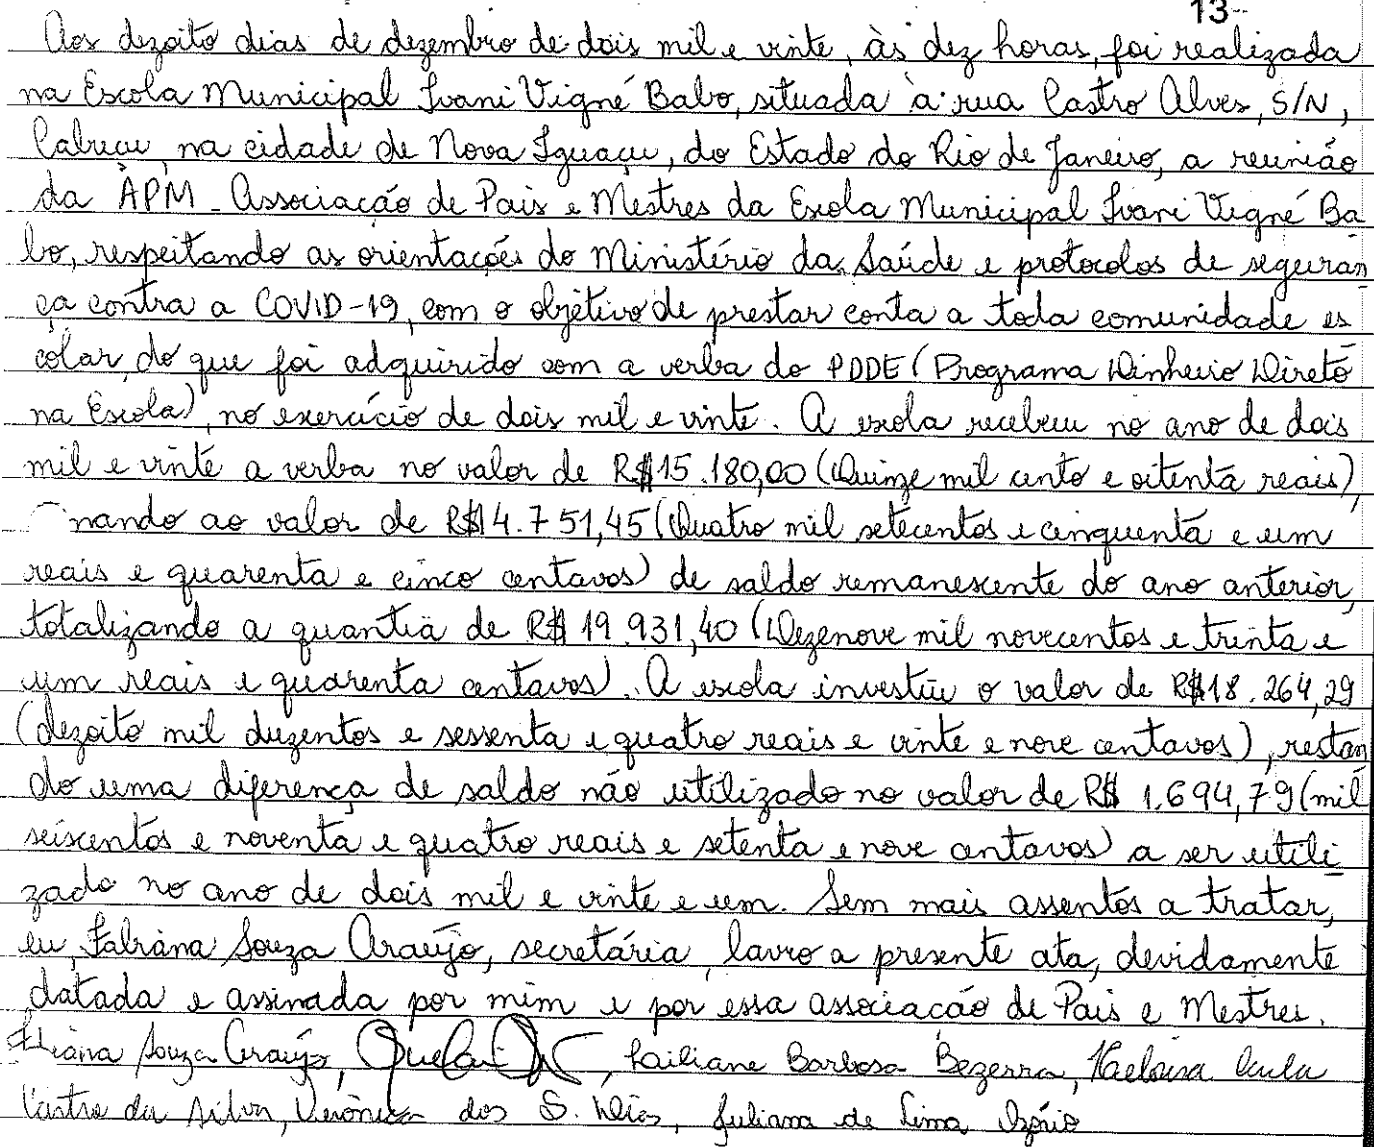 13
Aos dezoito dias de dezembro de dois mil e vinte, às dez horas, foi realizada
na Escola Municipal Ivani Vigné Babo, situada à rua Castro Alves, S/N,
Cabuçu, na cidade de Nova Iguaçu, do Estado do Rio de Janeiro, a reunião
da APM - Associação de Pais e Mestres da Escola Municipal Ivani Vigné Ba
bo, respeitando as orientações do Ministério da Saúde e protocolos de seguran
ça contra a COVID-19, com o objetivo de prestar conta a toda comunidade es
colar, do que foi adquirido com a verba do PDDE (Programa Dinheiro Direto
na Escola), no exercício de dois mil e vinte. A escola recebeu no ano de dois
mil e vinte a verba no valor de R$15.180,00 (Quinze mil cento e oitenta reais),
nando ao valor de R$14.751,45 (Quatro mil setecentos e cinquenta e um
reais e quarenta e cinco centavos) de saldo remanescente do ano anterior,
totalizando a quantia de R$ 19.931,40 (Dezenove mil novecentos e trinta e
um reais e quarenta centavos). A escola investiu o valor de R$18.264,29
(dezoito mil duzentos e sessenta e quatro reais e vinte e nove centavos), restan
do uma diferença de saldo não utilizado no valor de R$ 1.694,79 (mil
seiscentos e noventa e quatro reais e setenta e nove centavos) a ser utili
zado no ano de dois mil e vinte e um. Sem mais assentos a tratar,
eu, Fabiana Souza Araújo, secretária, lavro a presente ata, devidamente
datada e assinada por mim e por essa associação de Pais e Mestres.
Souza Araújo, Lailiane Barbosa Bezerra, Heloisa Paula
Castro da Silva, Verônica dos S. Dias, Juliana de Lima Ozório